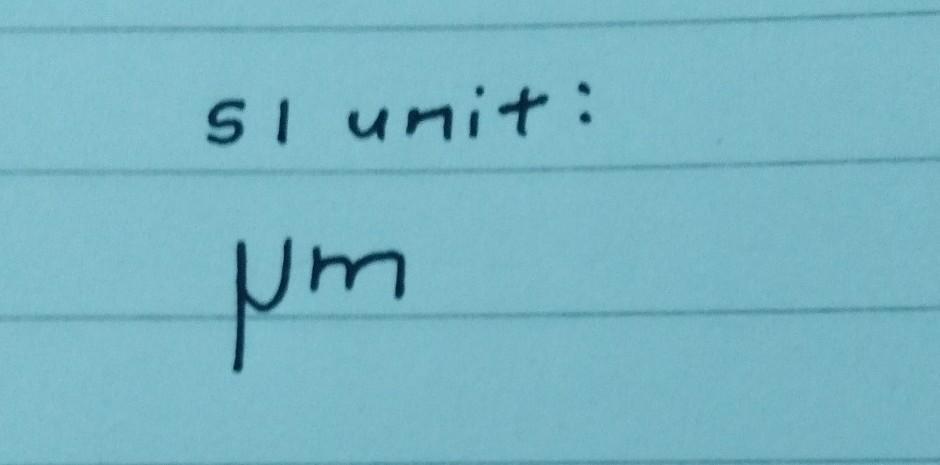 SI unit:
μm